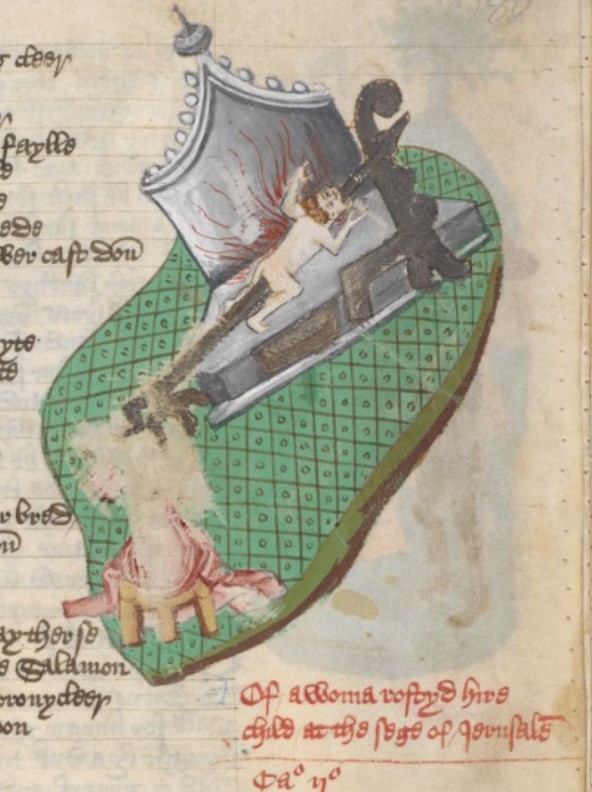 cleer
faylle
ede
wer cast doū
yte
r bred
ay therse
e Salamon
ronycleer
on
Of a woma rostyd hire
child at the sege of Jerusalē
Ca° 11°